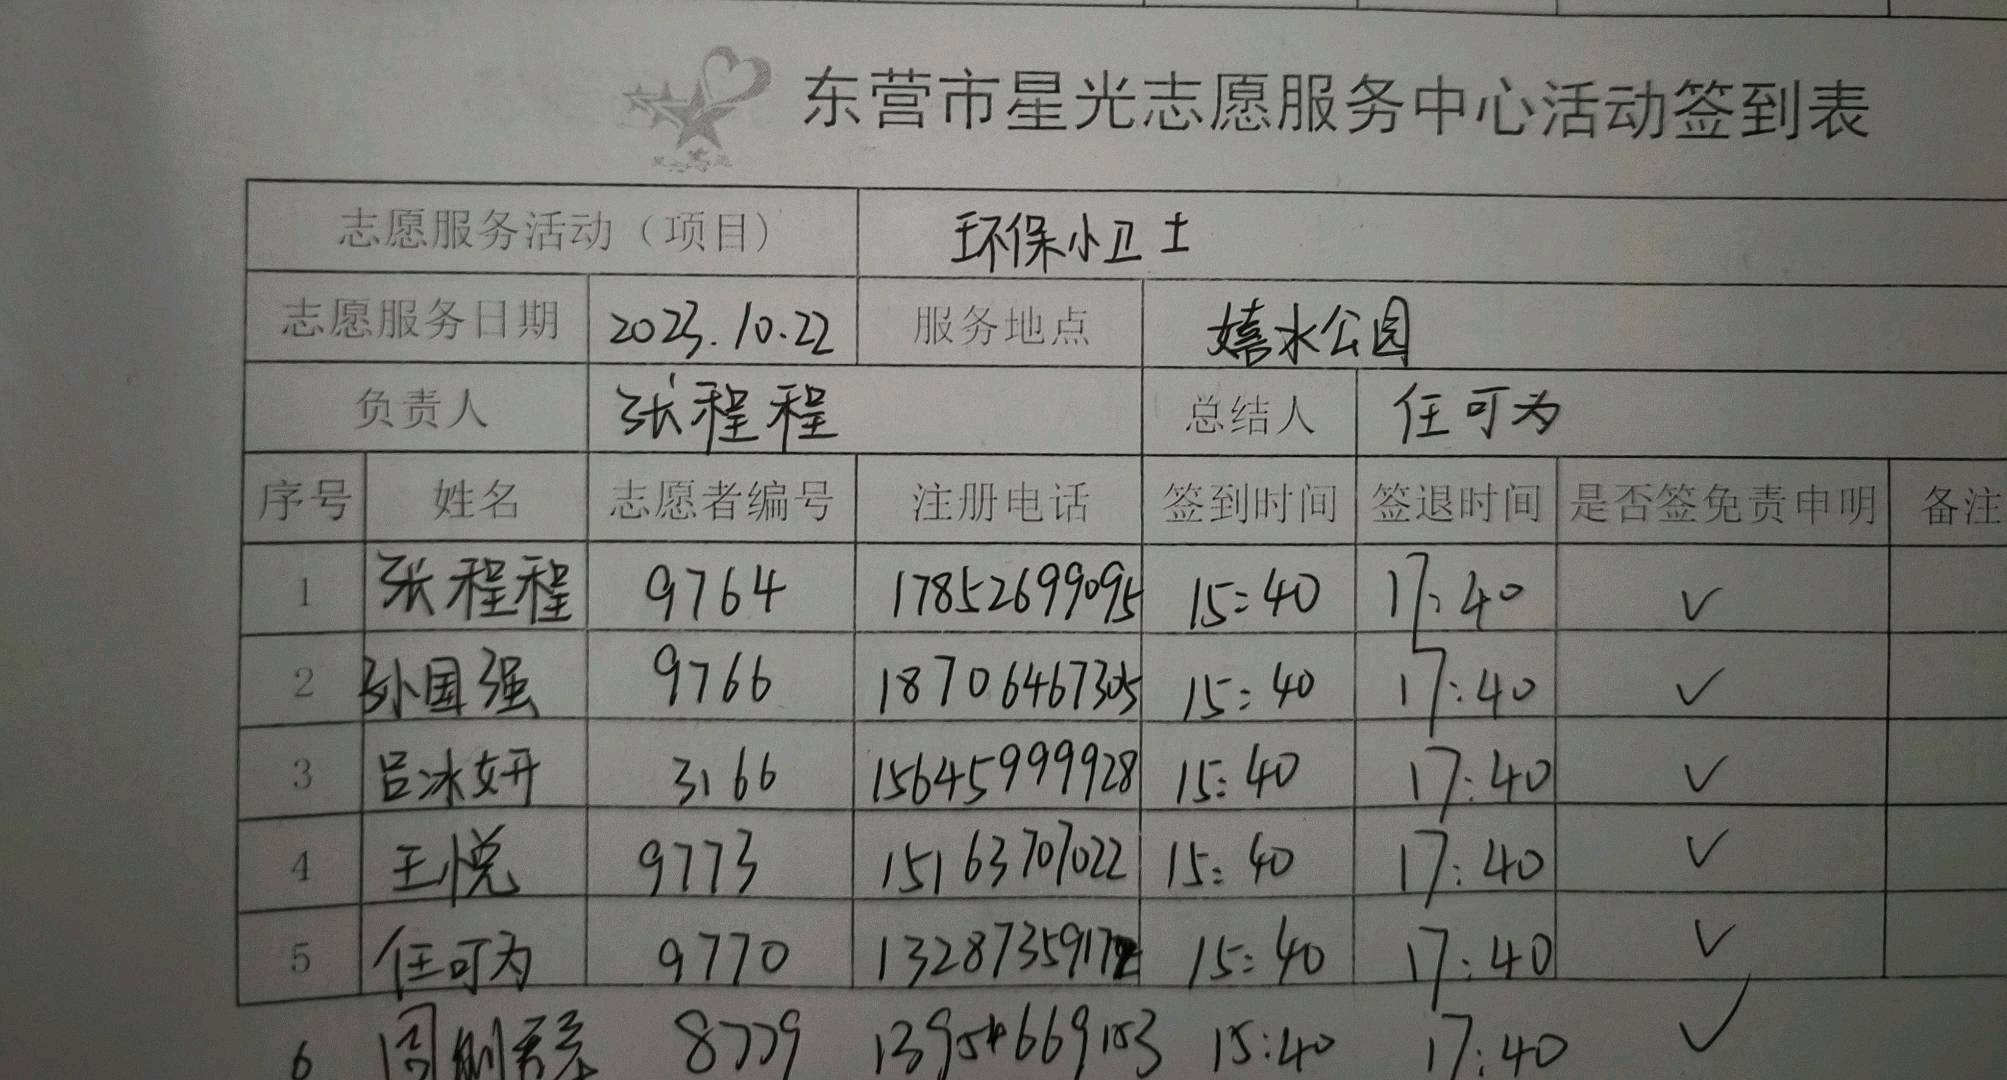 东营市星光志愿服务中心活动签到表
志愿服务活动（项目） 环保小卫士
志愿服务日期 2023.10.22 服务地点 嬉水公园
负责人 张程程 总结人 任可为
序号 姓名 志愿者编号 注册电话 签到时间 签退时间 是否签免责申明 备注
1 张程程 9764 17852699095 15:40 17:40 ✓
2 孙国强 9766 18706467305 15:40 17:40 ✓
3 吕冰妍 3166 15645999928 15:40 17:40 ✓
4 王悦 9773 15163707022 15:40 17:40 ✓
5 任可为 9770 15:40 17:40 ✓
6 周 8779 15:40 17:40 ✓